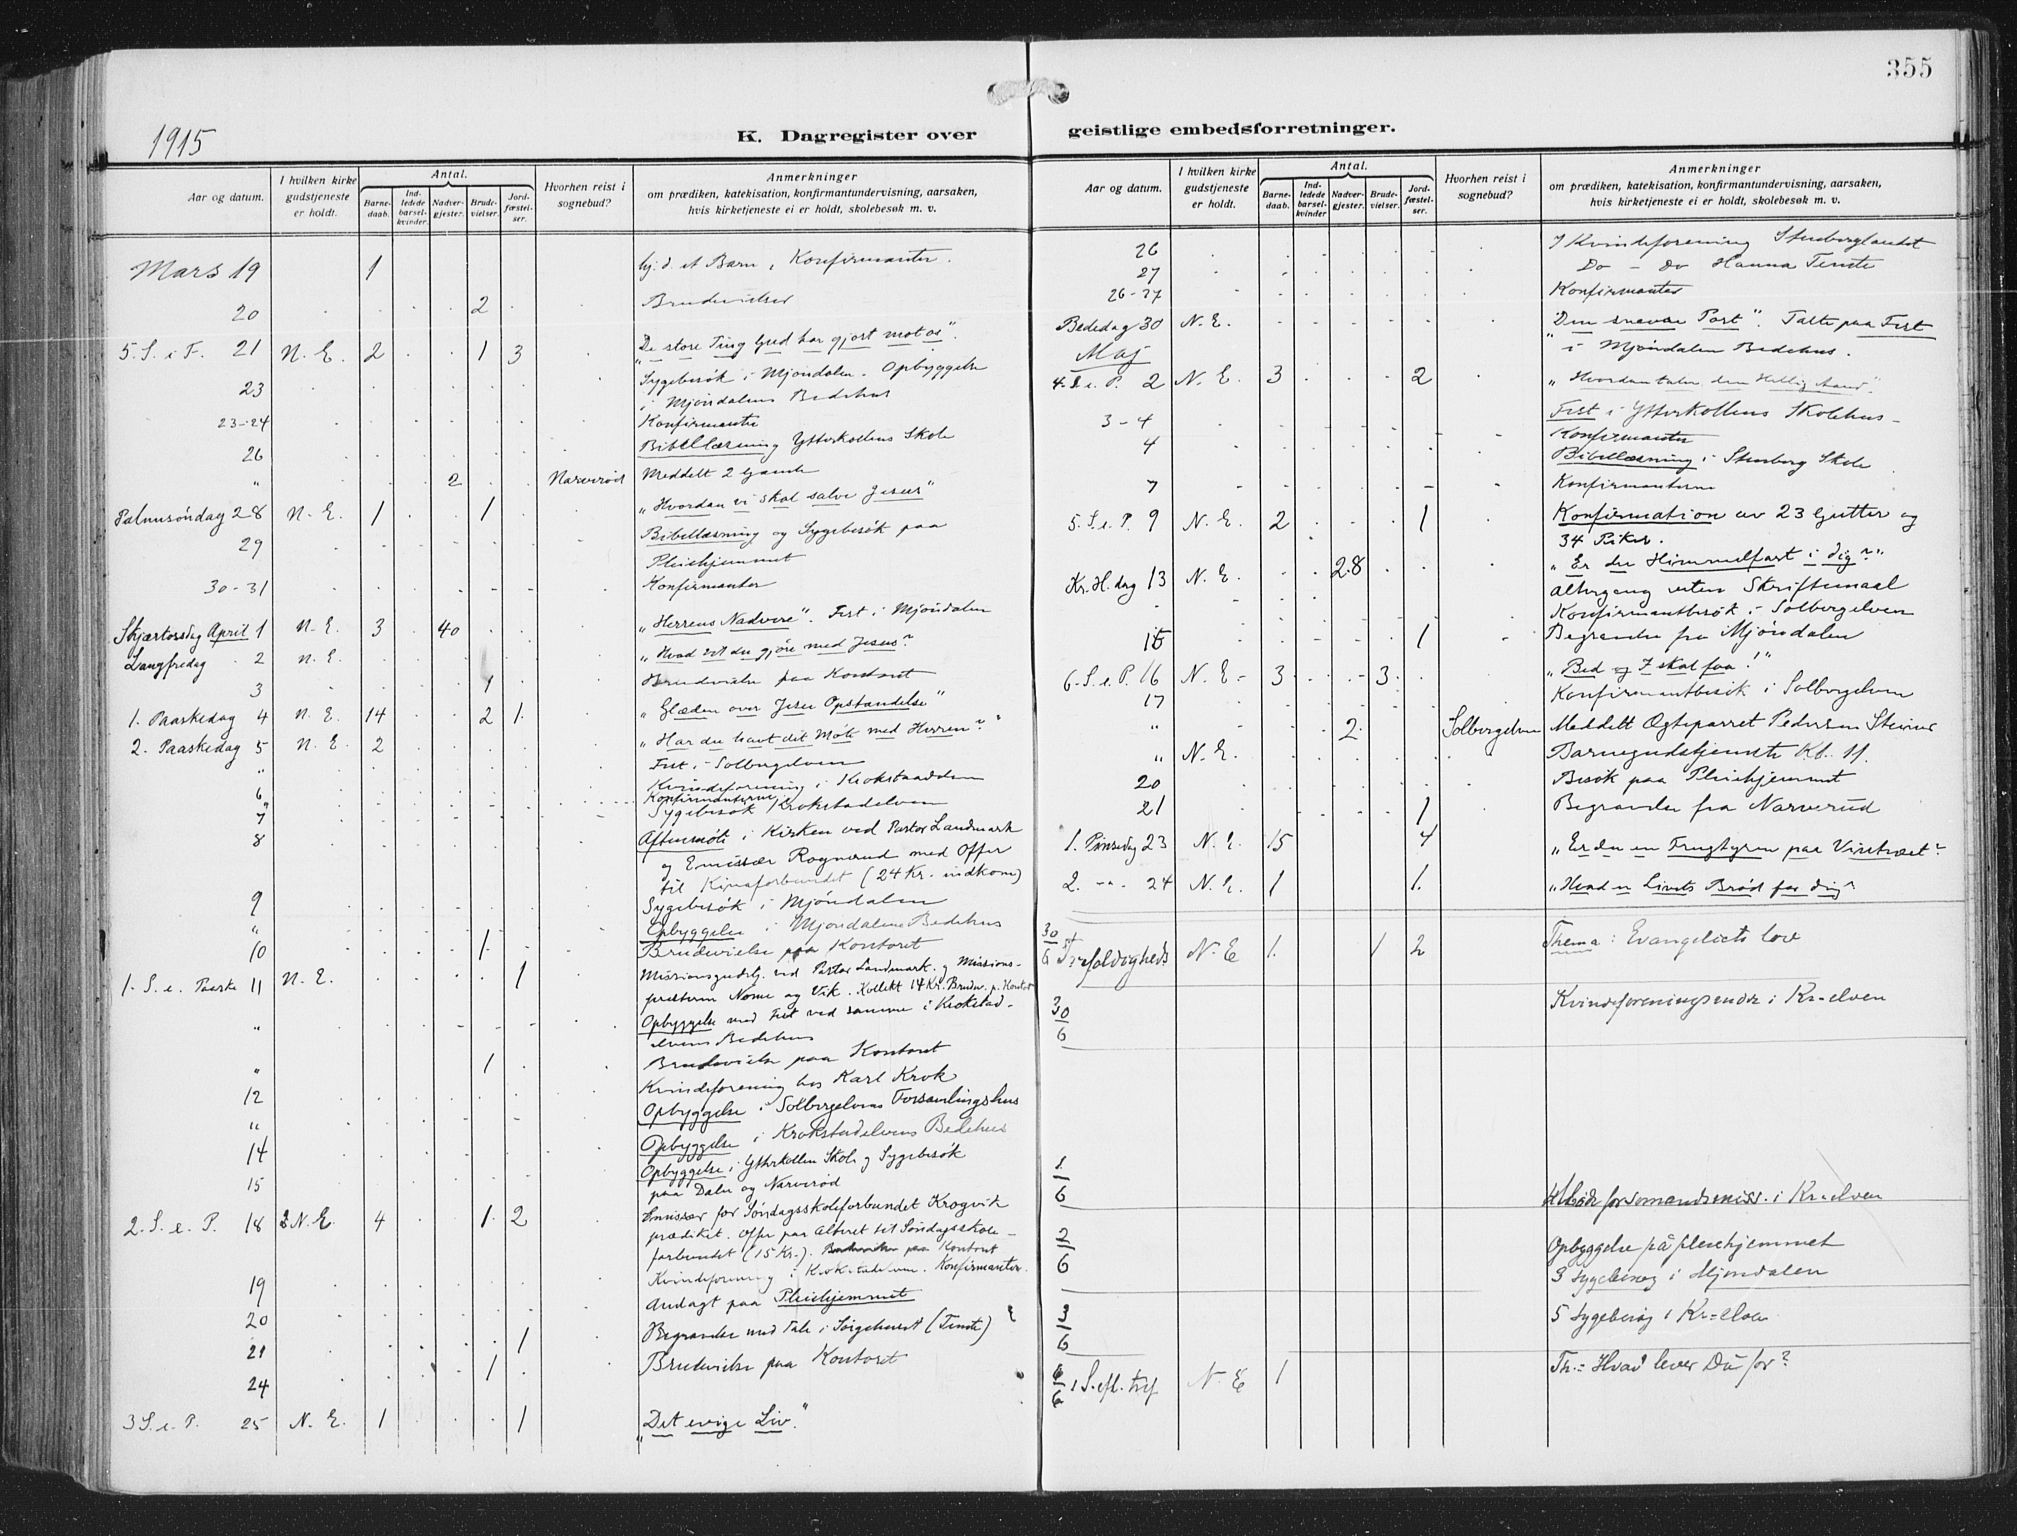 355
1915
K. Dagregister over
geistlige embedsforretninger.
Aar og datum.
I hvilken kirke gudstjeneste er holdt.
Antal.
Barnedaab.
Indledede barselkvinder
Nadvergjester.
Brudevielser.
Jordfæstelser.
Hvorhen reist i sognebud?
Anmerkninger
om prædiken, katekisation, konfirmantundervisning, aarsaken,
hvis kirketjeneste ei er holdt, skolebesøk m. v.
Mars 19 1 hj: d. et Barn, Konfirmanter.
20 2 Brudevielser
5. S. i F. 21 N. E. 2 1 3 "De store Ting Gud har gjort mot os".
23 Sygebesök i Mjöndalen. Opbyggelse
i Mjöndalens Bedehus
23-24 Konfirmanter
26 Bibellæsning Ytterkollens Skole
" 2 Narverød Meddelt 2 Gamle
Palmesöndag 28 N. E. 1 1 "Hvordan vi skal salve Jesus"
29 Bibellæsning og Sygebesök paa
Pleiehjemmet
30-31 Konfirmanter
Skjærtorsdag April 1 N. E. 3 40 "Herrens Nadvere". Fest i Mjöndalen
Langfredag 2 N. E. "Hvad vil du gjöre med Jesus?
3 1 Brudevielse paa Kontoret
1. Paaskedag 4 N. E. 14 2 1. "Glæden over Jesu Opstandelse"
2. Paaskedag 5 N. E. 2 "Har du havt dit Möte med Herren?"
" Fest i Solbergelven
6 Kvindeforening i Krokstadelven
Konfirmanterne
7 Sygebesök Krokstadelven
8 Aftenmöte i Kirken ved Pastor Landmark
og Emissær Rognerud med Offer
til Kinaforbundet (24 Kr. indkom)
9 Sygebesök i Mjöndalen
" Opbyggelse i Mjöndalens Bedehus
10 1. Brudevielse paa Kontoret
1. S. e. Paaske 11 N. E. 1 Missionsgudstj. ved Pastor Landmark og Missions-
presterne Nome og Vik. Kollekt 14 Kr. Brudv. p. Kontor
" Opbyggelse med Fest ved samme i Krokstad-
elvens Bedehus
" 1 Brudevielse paa Kontoret
12 Kvindeforening hos Karl Krok
" Opbyggelse i Solbergelvens Forsamlingshus
14 Opbyggelse i Krokstadelvens Bedehus
15 Opbyggelse i Ytterkollen Skole og Sygebesök
paa Daler og Narveröd
2. S. e. P. 18 N. E. 4 1. 2 Emissær for Söndagsskoleforbundet Krogvik
prædiket. Offer paa Alteret til Söndagsskole-
forbundet (15 Kr.). Brudevielse paa Kontoret
19 Kvindeforening i Krokstadelven. Konfirmanter.
20 Andagt paa Pleiehjemmet
21 1 Begravelse med Tale i Sörgehuset (Tinste)
24 1 Brudevielse paa Kontoret
3 S. e. P. 25 N. E. 1 1 "Det evige Liv."
Aar og datum.
I hvilken kirke gudstjeneste er holdt.
Antal.
Barnedaab.
Indledede barselkvinder
Nadvergjester.
Brudevielser.
Jordfæstelser.
Hvorhen reist i sognebud?
Anmerkninger
om prædiken, katekisation, konfirmantundervisning, aarsaken,
hvis kirketjeneste ei er holdt, skolebesøk m. v.
26 I Kvindeforening Stenberglandet
27 Do - do Hanna Tinste
26-27 Konfirmanter
Bededag 30 N. E. "Den snevre Port". Talte paa Fest
i Mjöndalen Bedehus.
Maj
4. S. e. P. 2 N. E. 3 2 "Hvordan taler den Hellig Aand".
3-4 Fest i Ytterkollens Skolehus-
Konfirmanter
4 Bibellæsning i Stenberg Skole
7 Konfirmanterne
5. S. e. P. 9 N. E. 2 1 Konfirmation av 23 Gutter og
34 Piker.
Kr. H. dag 13 N. E. 28 "Er du Himmelfart i dig?"
altergang uten Skriftemaal
Konfirmantbesök i Solbergelven
15 1 Begravelse fra Mjöndalen
6. S. e. P. 16 N. E. 3 3 "Bed og I skal faa!"
17 Konfirmantbesök i Solbergelven
" 2 Solbergelven Meddelt Ægteparret Pedersen Steiner
" N. E. Barnegudstjeneste Kl. 11.
20 Besök paa Pleiehjemmet
21 1 Begravelse fra Narverud
1. Pinsedag 23 N. E. 15 4 "Er du en Frugtgren paa Vintræet?
2. -"- 24 N. E. 1 1. "Hvad er Livets Bröd for dig?
30/6 Trefoldigheds N. E 1. 1 2 Thema: Evangeliets lov
30/6 Kvindeforeningsmöde i Kr-elven
1/6 for sömandsmiss. i Kr-elven
2/6 Opbyggelse på pleiehjemmet
3 sygebesög i Mjöndalen
3/6 5 Sygebesög i Kr-elven
6/6 1 S. eft. tref N. E 1 Th.: Hvad lever Du for?